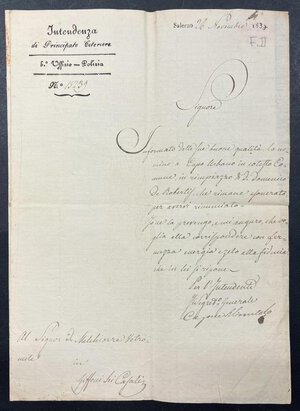 Intendenza
di Principato Citeriore
5.° Uffizio — Polizia
N.°
Salerno 26 Novembre 183
Signore
Informato delle sue buone qualità la no-
mino a Capo Urbano in cotesto Co-
mune in rimpiazzo di D. Domenico
De Robertis, che rimane esonerato
per avervi rinunciato.
Gliene la prevengo, e mi auguro, che vo-
glia ella corrispondere con fer-
mezza energia e zelo alla fiducia
che in lei si ripone.
Per l'Intendente
Il Segret.° Generale
Al Signor D. Melchiorre
in
Giffoni Sei Casali